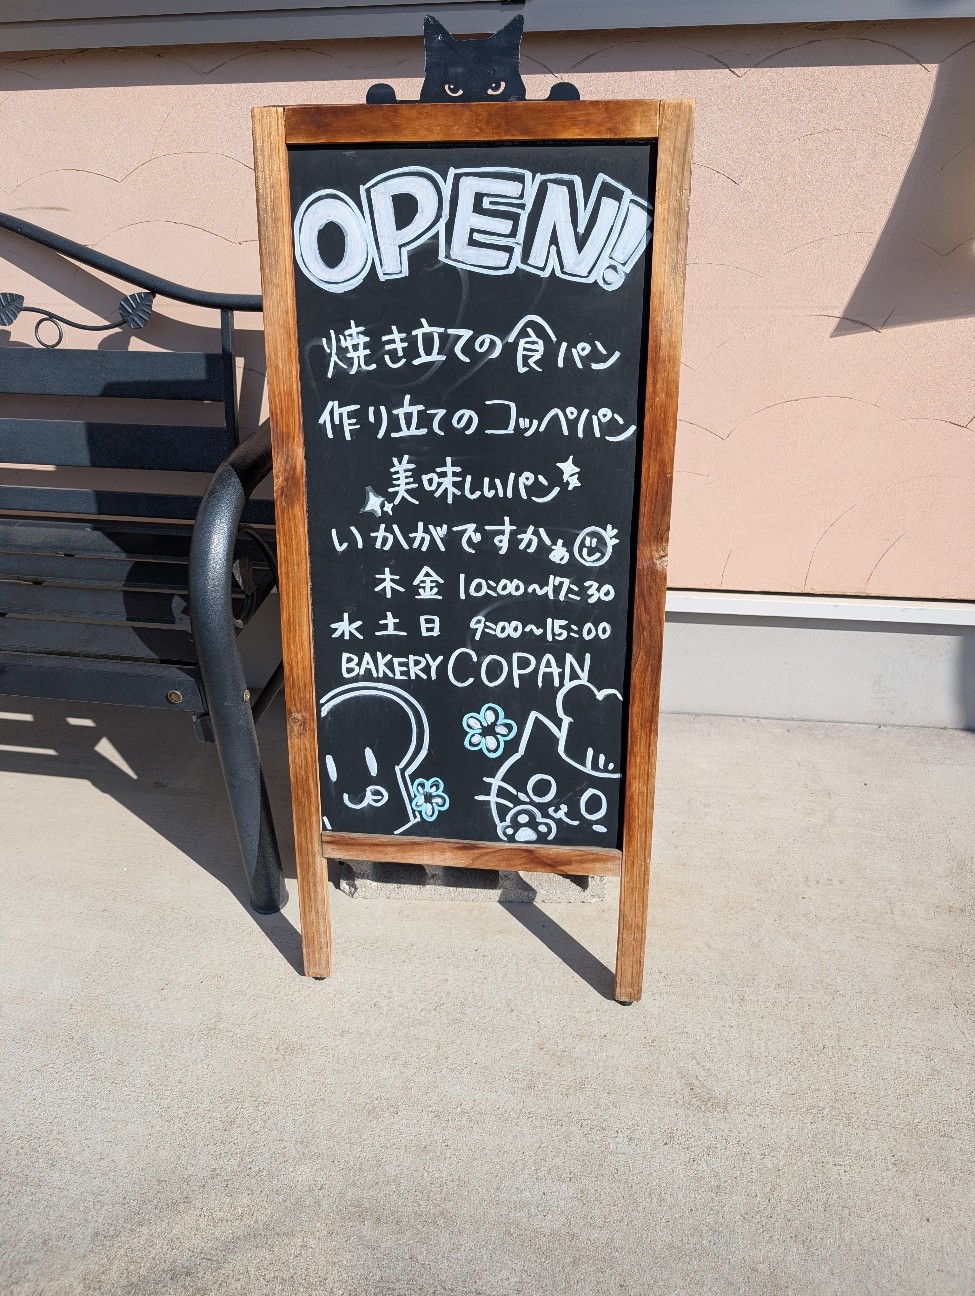 OPEN!
焼き立ての食パン
作り立てのコッペパン
美味しいパン
いかがですかぁ
木金 10:00~17:30
水土日 9:00~15:00
BAKERY COPAN